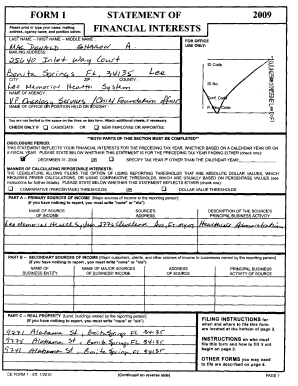 FORM 1
STATEMENT OF
2009
FINANCIAL INTERESTS
Please print or type your name, mailing
address, agency name, and position below:
LAST NAME -- FIRST NAME -- MIDDLE NAME:
FOR OFFICE
USE ONLY:
MacDonald Sharon A.
MAILING ADDRESS:
25640 Inlet Way Court
Bonita Springs FL, 34135 Lee
CITY: ZIP: COUNTY:
Lee Memorial Health System
NAME OF AGENCY:
VP Oncology Services / Chief Foundation Officer
NAME OF OFFICE OR POSITION HELD OR SOUGHT:
ID Code
ID No.
Conf. Code
P. Req. Code
You are not limited to the space on the lines on this form. Attach additional sheets, if necessary.
CHECK ONLY IF CANDIDATE OR NEW EMPLOYEE OR APPOINTEE
**BOTH PARTS OF THIS SECTION MUST BE COMPLETED**
DISCLOSURE PERIOD:
THIS STATEMENT REFLECTS YOUR FINANCIAL INTERESTS FOR THE PRECEDING TAX YEAR, WHETHER BASED ON A CALENDAR YEAR OR ON
A FISCAL YEAR. PLEASE STATE BELOW WHETHER THIS STATEMENT IS FOR THE PRECEDING TAX YEAR ENDING EITHER (check one):
DECEMBER 31, 2009 OR SPECIFY TAX YEAR IF OTHER THAN THE CALENDAR YEAR:
MANNER OF CALCULATING REPORTABLE INTERESTS:
THE LEGISLATURE ALLOWS FILERS THE OPTION OF USING REPORTING THRESHOLDS THAT ARE ABSOLUTE DOLLAR VALUES, WHICH
REQUIRES FEWER CALCULATIONS, OR USING COMPARATIVE THRESHOLDS, WHICH ARE USUALLY BASED ON PERCENTAGE VALUES (see
instructions for further details). PLEASE STATE BELOW WHETHER THIS STATEMENT REFLECTS EITHER (check one):
COMPARATIVE (PERCENTAGE) THRESHOLDS OR DOLLAR VALUE THRESHOLDS
PART A -- PRIMARY SOURCES OF INCOME [Major sources of income to the reporting person]
(If you have nothing to report, you must write "none" or "n/a")
NAME OF SOURCE OF INCOME
SOURCE'S ADDRESS
DESCRIPTION OF THE SOURCE'S PRINCIPAL BUSINESS ACTIVITY
Lee Memorial Health System 2776 Cleveland Ave, Ft. Myers Healthcare Administration
PART B -- SECONDARY SOURCES OF INCOME [Major customers, clients, and other sources of income to businesses owned by the reporting person]
(If you have nothing to report, you must write "none" or "n/a")
NAME OF BUSINESS ENTITY
NAME OF MAJOR SOURCES OF BUSINESS' INCOME
ADDRESS OF SOURCE
PRINCIPAL BUSINESS ACTIVITY OF SOURCE
PART C -- REAL PROPERTY [Land, buildings owned by the reporting person]
(If you have nothing to report, you must write "none" or "n/a")
9771 Alabama St, Bonita Springs FL 34135
9775 Alabama St, Bonita Springs, FL 34135
9741 Alabama St, Bonita Springs, FL 34135
FILING INSTRUCTIONS for
when and where to file this form
are located at the bottom of page 2.
INSTRUCTIONS on who must
file this form and how to fill it out
begin on page 3.
OTHER FORMS you may need
to file are described on page 6.
CE FORM 1 - Eff. 1/2010
(Continued on reverse side)
PAGE 1